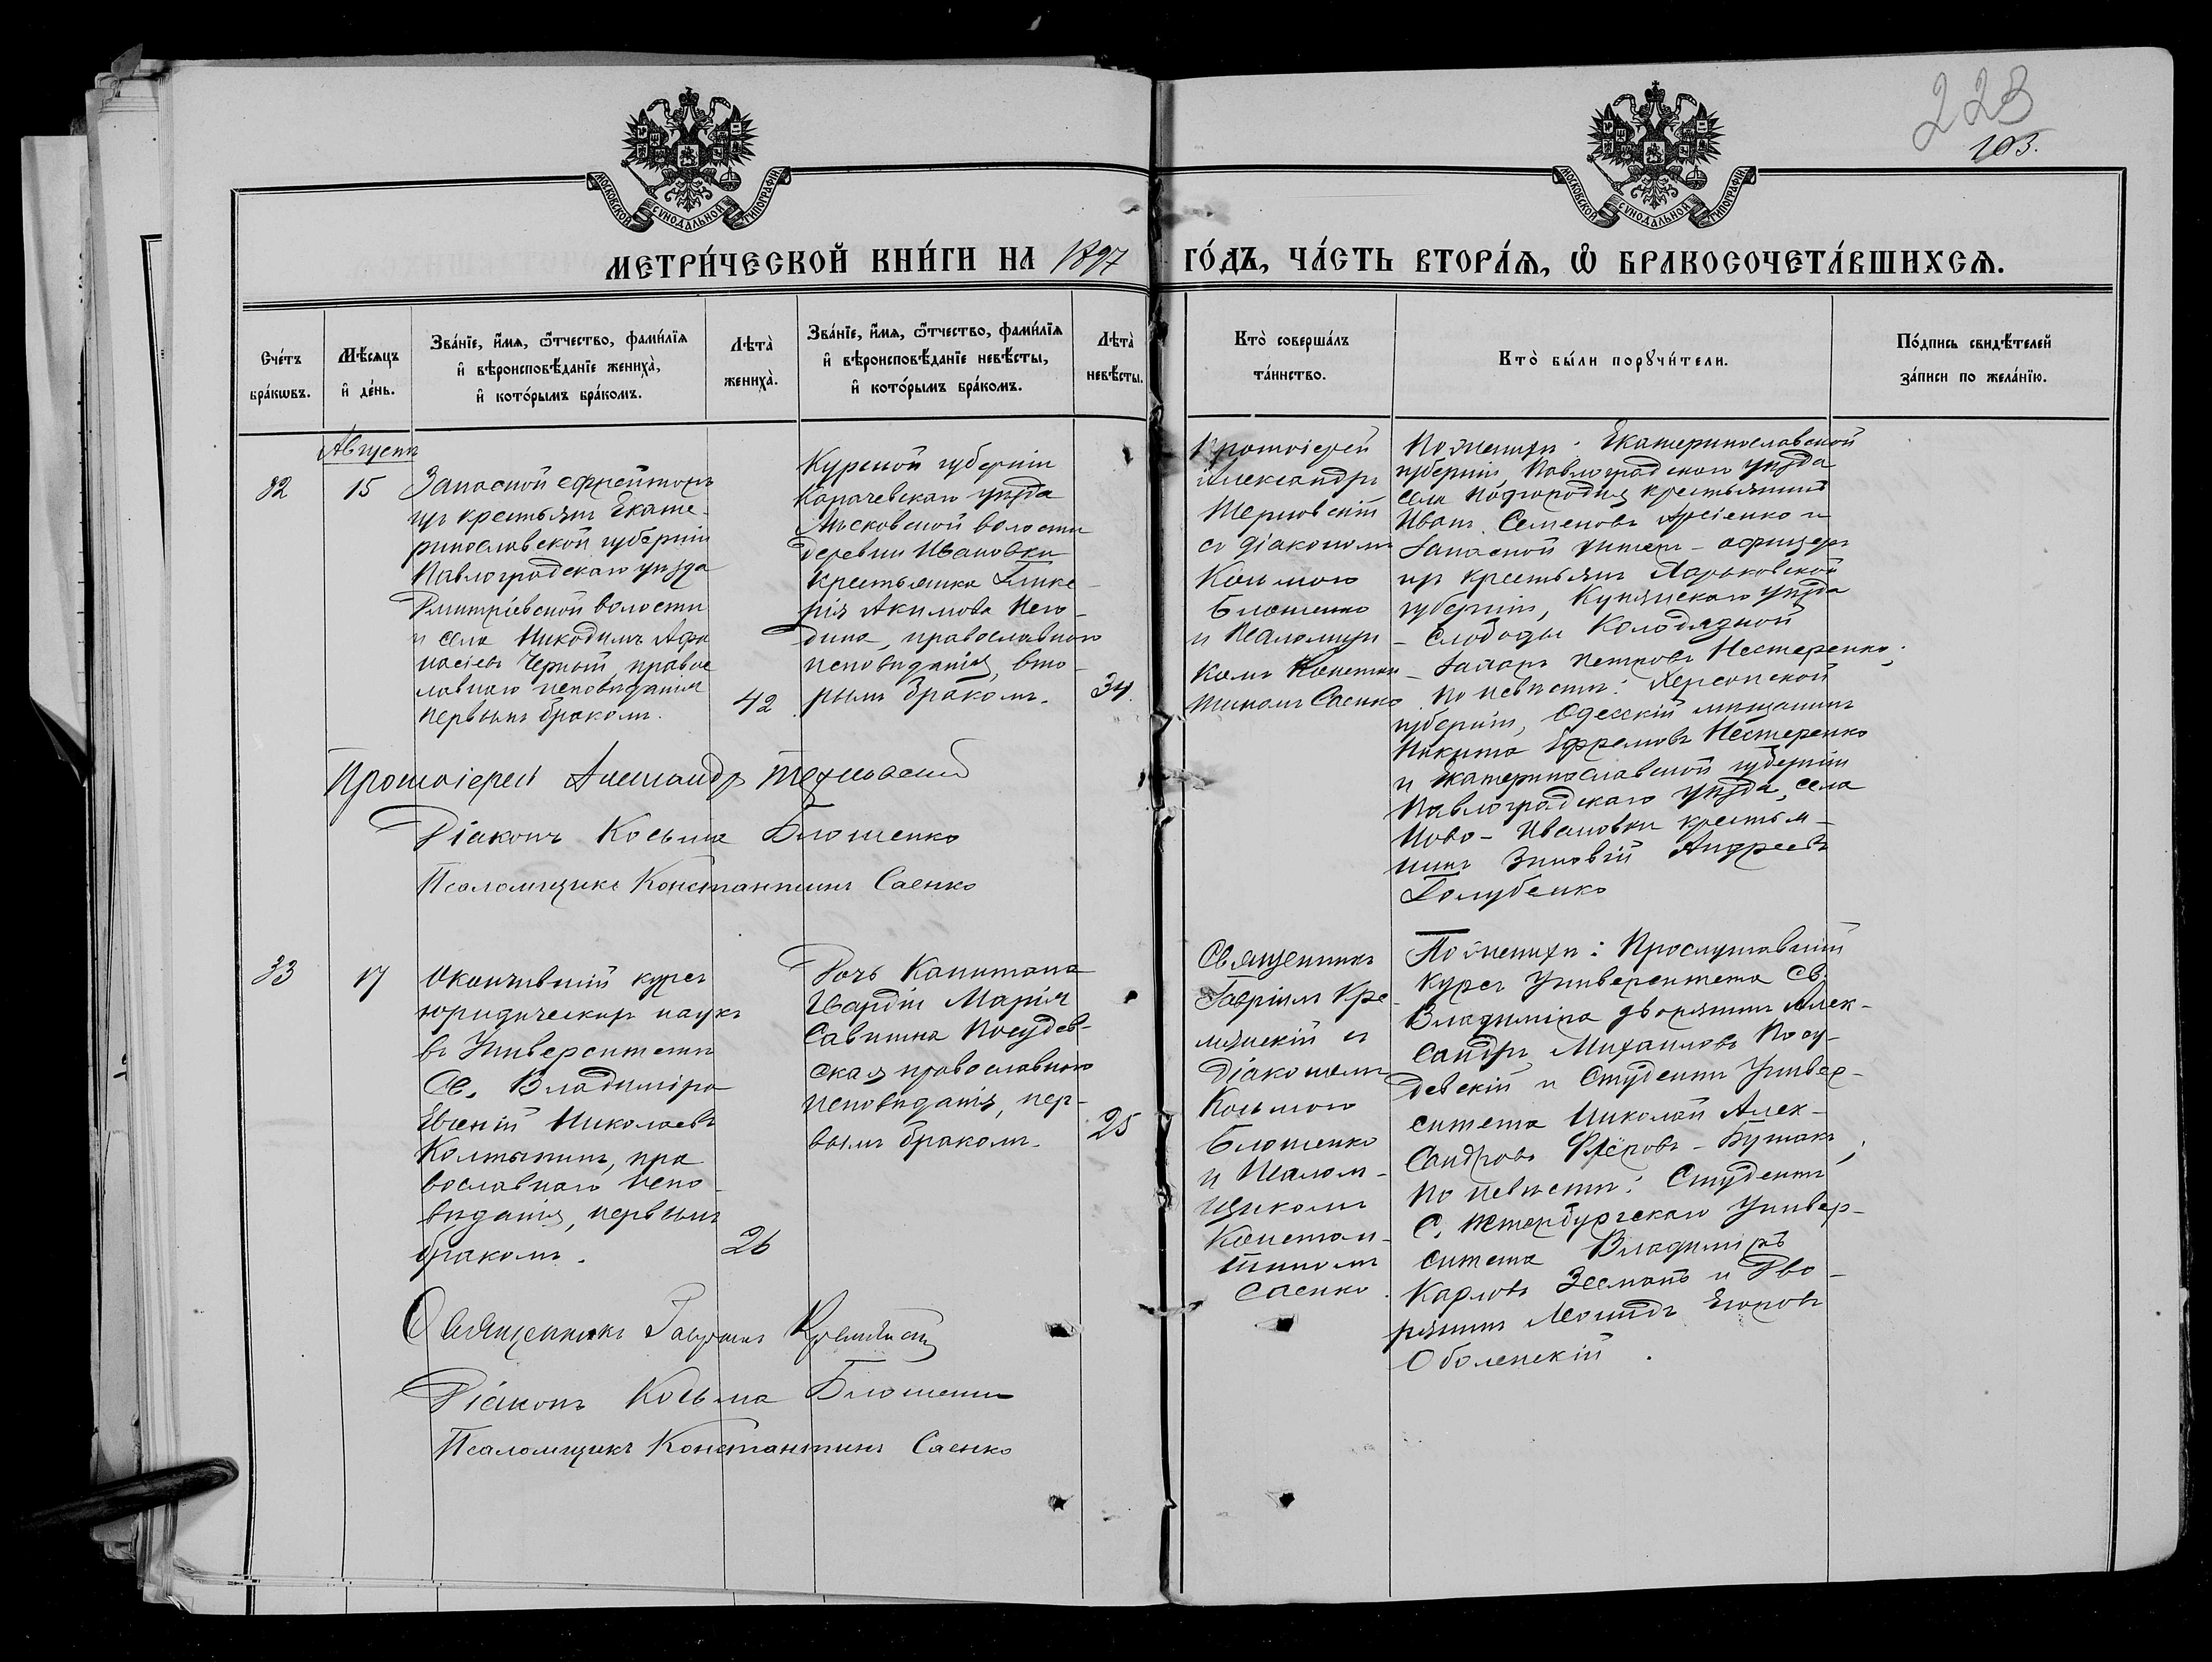 223
103.
МОСКОВСКОЙ СѴНОДАЛЬНОЙ ТИПОГРАФІИ
МОСКОВСКОЙ СѴНОДАЛЬНОЙ ТИПОГРАФІИ
МЕТРИ́ЧЕСКОЙ КНИ́ГИ НА 1897 ГО́ДЪ, ЧА́СТЬ ВТОРА́Я, Ѡ БРАКОСОЧЕТА́ВШИХСЯ.
Сче́тъ
бра́кѡвъ.
Мѣ́сяцъ
и҆ де́нь.
Зва́нїе, и҆́мя, ѻ҆́тчество, фами́лїя
и҆ вѣроисповѣ́данїе жениха̀,
и҆ кото́рымъ бра́комъ.
Лѣта̀
жениха̀.
Зва́нїе, и҆́мя, ѻ҆́тчество, фами́лїя
и҆ вѣроисповѣ́данїе невѣ́сты,
и҆ кото́рымъ бра́комъ.
Лѣта̀
невѣ́сты.
Кто̀ соверша́лъ
та́инство.
Кто̀ бы́ли порꙋчи́тели.
По́дпись свидѣ́телей
за́писи по жела́нїю.
Августъ
32
15
Запасной ефрейторъ
изъ крестьянъ Екате-
ринославской губерніи
Павлоградскаго уѣзда
Дмитріевской волости
и села Никодимъ Афа
насіевъ Черный, правос
лавнаго исповѣданія
первымъ бракомъ.
42
Курской губерніи
Карачевскаго уѣзда
волости
деревни Ивановки
крестьянка Глике-
рія Акимова
православнаго
исповѣданія, вто-
рымъ бракомъ.
34.
Протоіерей
Александръ
Терновскій
съ діакономъ
Космою
Блошенко
и Псаломщи-
комъ Констан-
тиномъ Саенко
По женихѣ: Екатеринославской
губерніи, Павлоградскаго уѣзда
села крестьянинъ
Иванъ Семеновъ и
Запасной унтеръ-офицеръ
изъ крестьянъ Харьковской
губерніи, Купянскаго уѣзда
слободы Колодязной
Захаръ Петровъ Нестеренко;
по невѣстѣ: Херсонской
губерніи, Одесскій мѣщанинъ
Никита Ефремовъ Нестеренко
и Екатеринославской губерніи
Павлоградскаго уѣзда, села
Ново-Ивановки крестья-
нинъ Зиновій Андреевъ
Голубенко
Протоіерей Александръ Терновский
Діаконъ Косьма Блошенко
Псаломщикъ Константинъ Саенко
33
17
Окончившій курсъ
юридическихъ наукъ
въ Университетѣ
Св. Владиміра
Евгеній Николаевъ
пра
вославнаго испо-
вѣданія, первымъ
бракомъ.
26
Дочь Капитана
Гвардіи Марія
Саввишна Посудев-
ская православнаго
исповѣданія, пер-
вымъ бракомъ.
25
Священникъ
Гавріилъ Кре-
мянскій съ
діакономъ
Космою
Блошенко
и Псалом-
щикомъ
Констан-
тиномъ
Саенко.
По женихѣ: Прослушавшій
курсъ Университета Св.
Владиміра дворянинъ Алек-
сандръ Михаиловъ Посу-
девскій и Студентъ Универ-
ситета Николай Алек-
сандровъ
по невѣстѣ: Студентъ
С. Петербургскаго Универ-
ситета Владиміръ
Карловъ Зееманъ и Дво-
рянинъ Леонидъ Егоровъ
Оболенскій.
Священникъ Гавріилъ
Діаконъ Косьма Блошенко
Псаломщикъ Константинъ Саенко